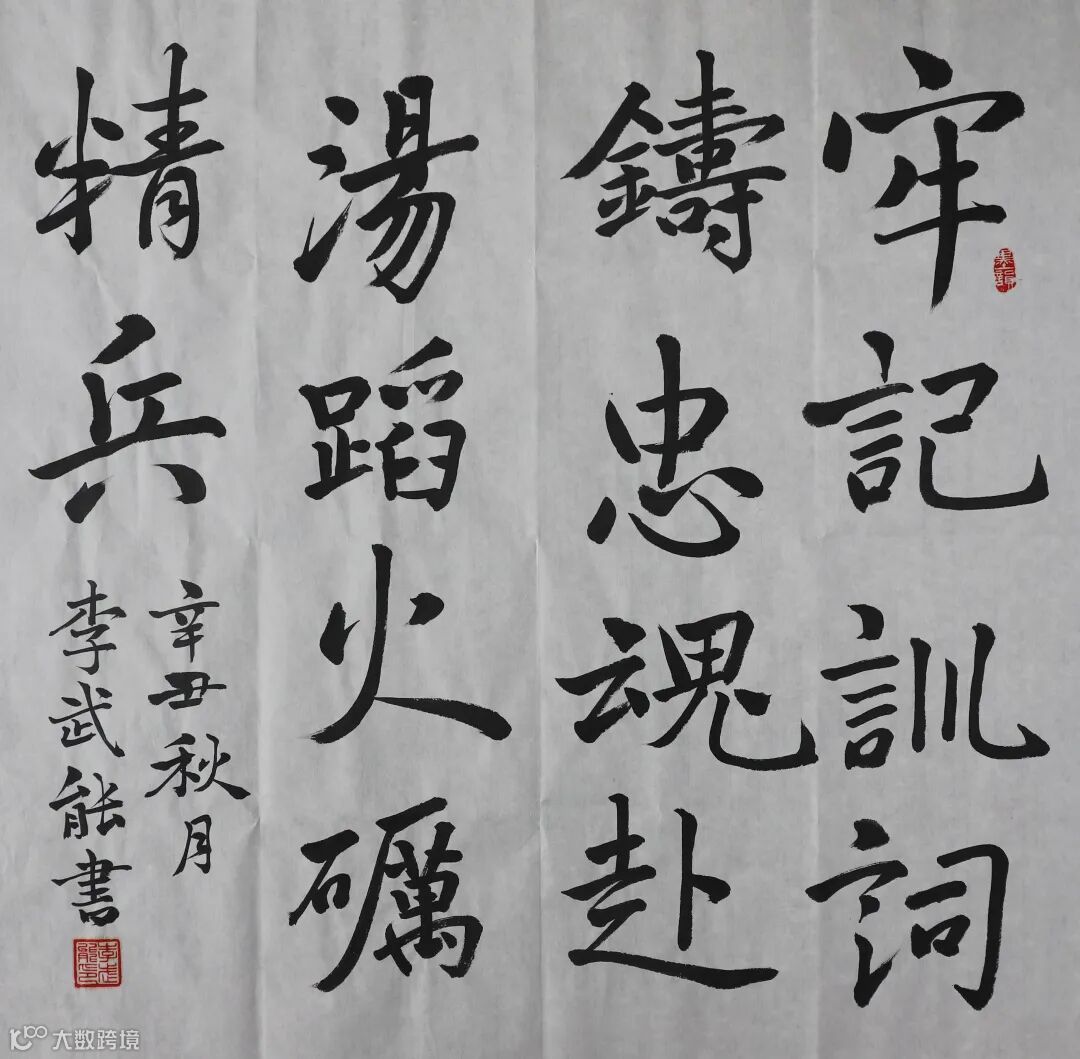 牢記訓詞
鑄忠魂赴
湯蹈火礪
精兵
辛丑秋月
李武能書
大数跨境